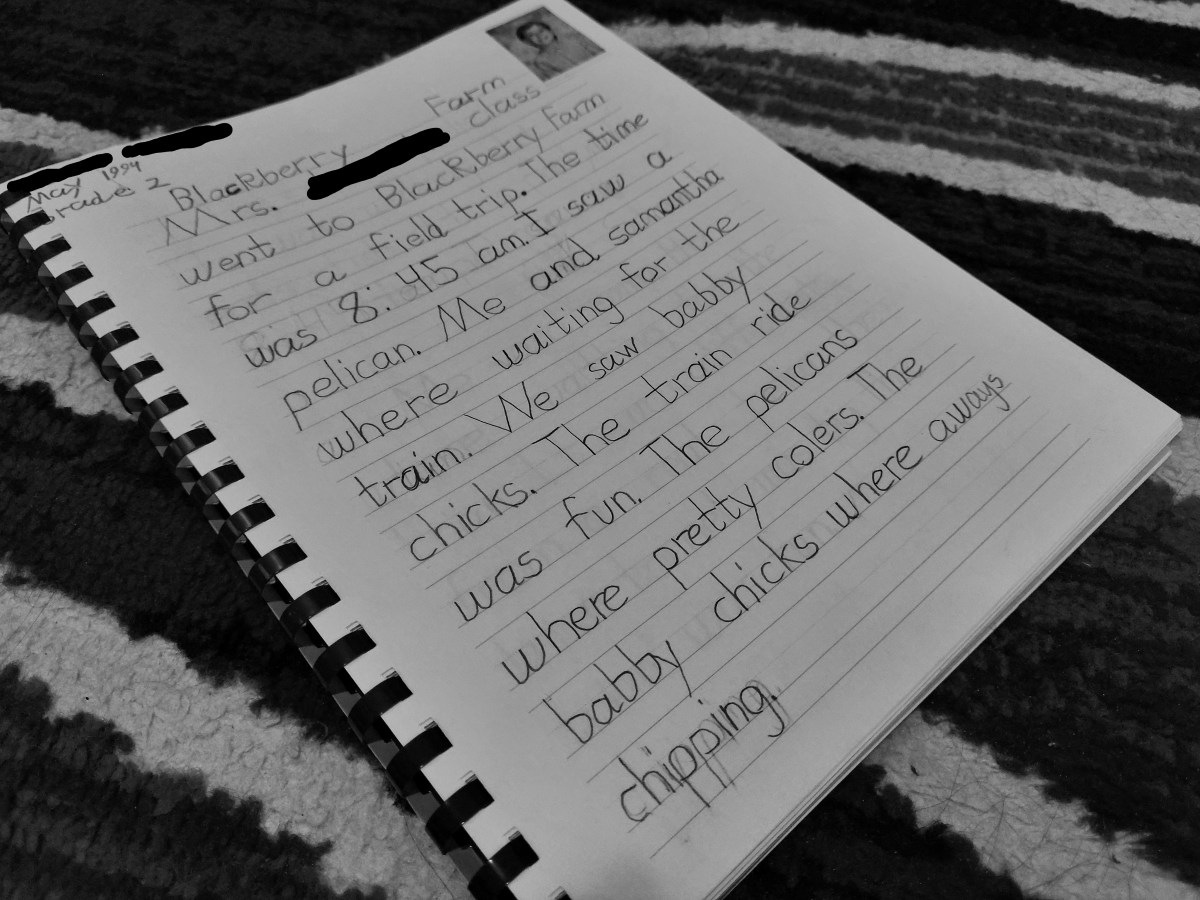 May 1994
Grade 2
Blackberry Farm
Mrs. Class
went to Blackberry Farm
for a field trip. The time
was 8:45 am. I saw a
pelican. Me and samantha
where waiting for the
train. We saw babby
chicks. The train ride
was fun. The pelicans
where pretty colers. The
babby chicks where aways
chipping.